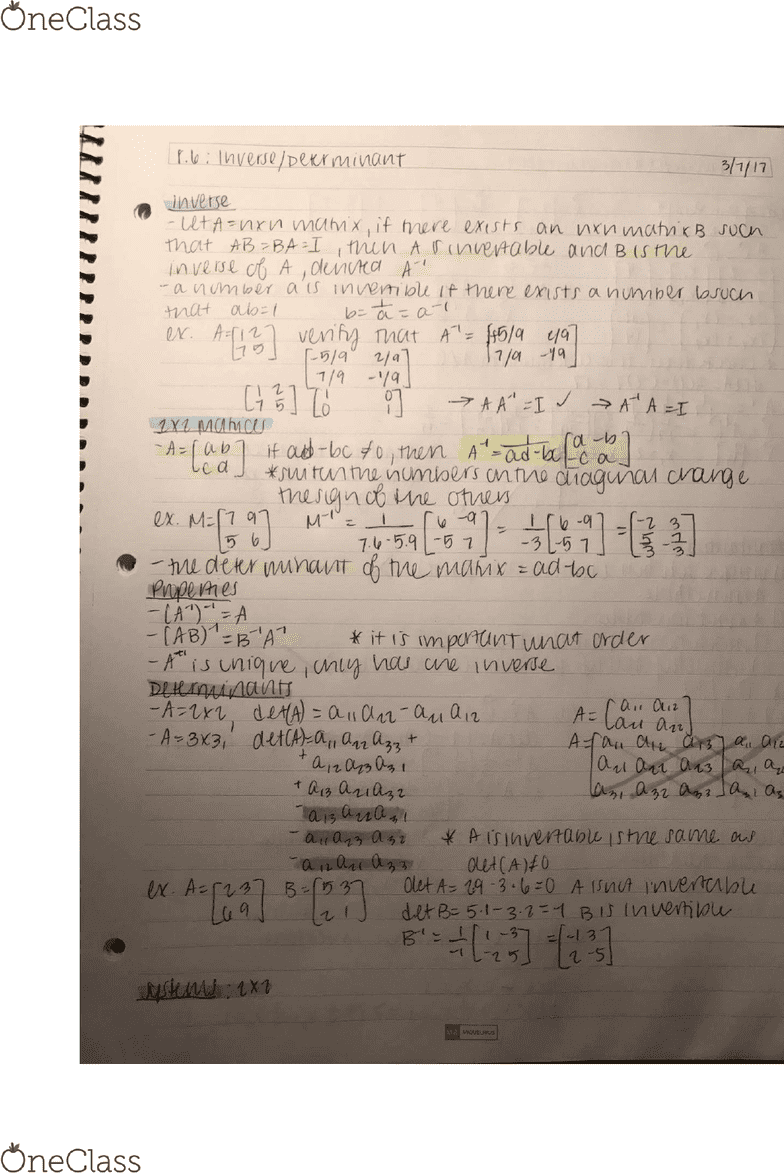 OneClass
8.6: Inverse/Determinant
3/7/17
inverse
- let A = nxn matrix, if there exists an nxn matrix B such
that AB = BA = I, then A is invertable and B is the
inverse of A, denoted A⁻¹
- a number a is invertible if there exists a number b such
that ab=1 b = 1/a = a⁻¹
ex. A = [1 2
7 5] verify that A⁻¹ = [-5/9 2/9
7/9 -1/9]
[-5/9 2/9
7/9 -1/9]
[1 2
7 5] [1 0
0 1] → AA⁻¹ = I ✓ → A⁻¹A = I
2x2 Matrices
- A = [a b
c d] if ad-bc ≠ 0, then A⁻¹ = 1/ad-bc [a -b
-c a]
* switch the numbers on the diagonal change
the sign of the others
ex. M = [7 9
5 6] M⁻¹ = 1/7·6-5·9 [6 -9
-5 7] = 1/-3 [6 -9
-5 7] = [-2 3
5/3 -7/3]
- the determinant of the matrix = ad-bc
Properties
- (A⁻¹)⁻¹ = A
- (AB)⁻¹ = B⁻¹A⁻¹ * it is important what order
- A⁻¹ is unique, only has one inverse
Determinants
- A = 2x2, det(A) = a₁₁a₂₂ - a₂₁a₁₂ A = [a₁₁ a₁₂
a₂₁ a₂₂]
- A = 3x3, det(A) = a₁₁a₂₂a₃₃ +
+ a₁₂a₂₃a₃₁
+ a₁₃a₂₁a₃₂
- a₁₃a₂₂a₃₁
- a₁₁a₂₃a₃₂
- a₁₂a₂₁a₃₃
A = [a₁₁ a₁₂ a₁₃] a₁₁ a₁₂
[a₂₁ a₂₂ a₂₃] a₂₁ a₂
[a₃₁ a₃₂ a₃₃] a₃₁ a₃
* A is invertable is the same as
det(A) ≠ 0
ex. A = [2 3
6 9] B = [5 3
2 1] det A = 2·9 - 3·6 = 0 A is not invertable
det B = 5·1 - 3·2 = -1 B is invertible
B⁻¹ = 1/-1 [1 -3
-2 5] = [-1 3
2 -5]
systems: 2x2
OneClass